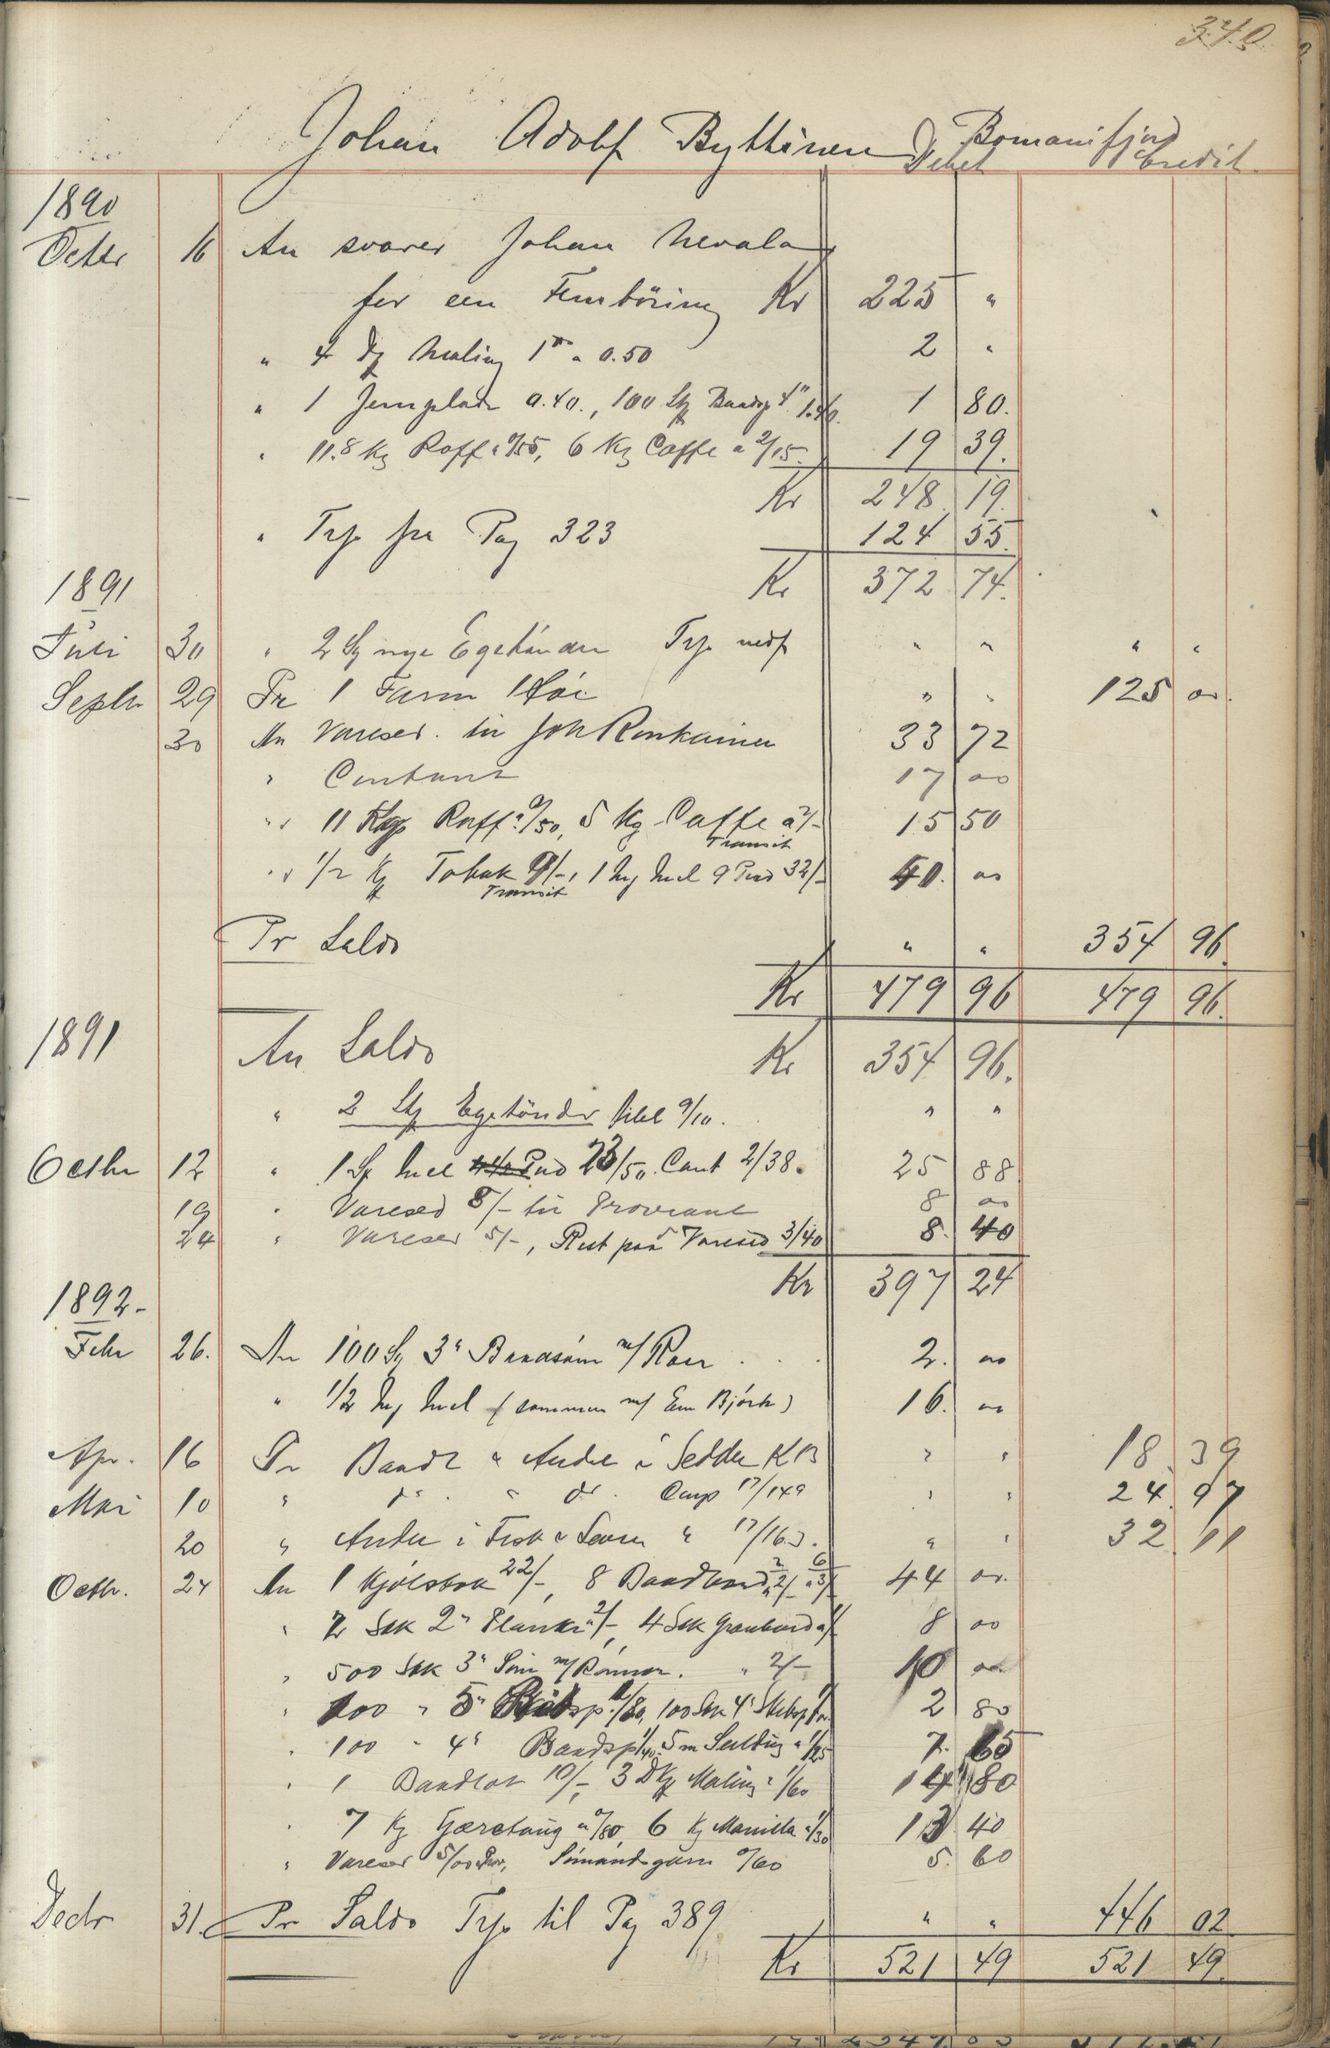 340.
Johan Adolf Byttinen Bomanifjord
Debet Credit
1890
Octbr 16 An svarer Johan Nevala
for een Fembøring Kr 225 "
" 4 Maling a 0.50 2 "
" 1 Jernplade 0.40., 100 Stk Baadsp 4" 1.40. 1 80.
" 11.8 Kg Raff a 0/55, 6 Kg Caffe a 2/15. 19 39.
Kr 248 19.
" Trp fra Pag 323 124 55.
Kr 372 74.
1891
Juli 30 " 2 nye Egetønder Trp nedf " " " "
Septr 29 Pr 1 Favn Høi " " 125 00.
30 An Varesed. til Joh Ronkainen 33 72
" Contant 17 00
" 11 Kg Raff a 0/50, 5 Kg Caffe a 2/- 15 50
Transit
" 1/2 Kg Tobak /-, 1 Mel 9 Pud 32/- 40. 00
Transit
Pr Saldo " " 354 96.
Kr 479 96 479 96.
1891 An Saldo Kr 354 96.
" 2 Stk Egetønder 9/10. " "
Octbr 12 " 1 Mel Pud 23/50. Cont 2/38. 25 88
19 " Varesed 8/- til Proviant 8 00
24 " Varesed 5/-, Rest paa Varesed 3/40 8. 40
Kr 397 24
1892-
Febr 26. An 100 3" Baadsøm m/ Roer . . . 2. 00
" 1/2 Mel (sammen m/ Em Bjørk) 16. 00
Apr. 16 Pr Baadl & Andel i Sedder K13 " " 18. 39
Mai 10 " do " do. 17/149 " " 24. 97
20 " Andel i Fisk & " 17/163. " " 32 11
Octbr. 24 An 1 Kjølstok 22/-, 8 Baadbord 2/2/- 6/3/- 44 00.
" 2 Stk 2" Planker a 2/-, 4 Stk Granbord a 1/- 8 00
" 500 Stk 3" Søm m/ Rønner. " 2/- 10 00.
" 100 " 5" 1/80, 100 Stk 4" 1/00 2 80
" 100 " 4" Baadsp 1/40. 5 m Seildug a 1/25 7. 65
" 1 10/-, 3 Maling a 1/60 14 80
" 7 Kg Tjæretaug a 0/80, 6 Kg Manilla a 1/30 13. 40
" Varesed 5/00, Sømandsgarn 0/60 5. 60
Decbr 31. Pr Saldo Trp til Pag 389 " " 446 02
Kr 521 49 521 49.